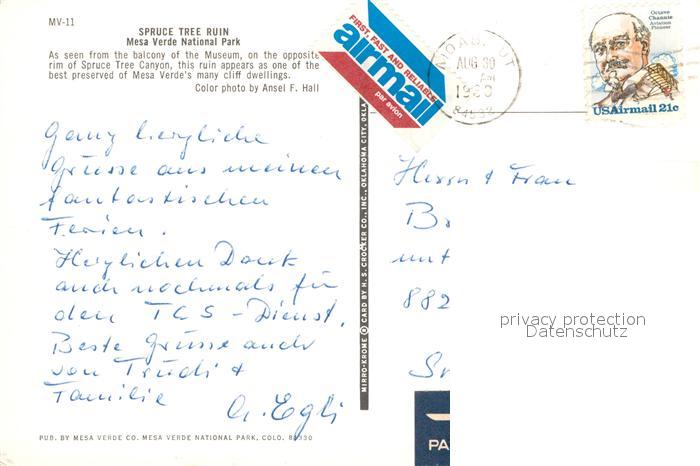 MV-11
SPRUCE TREE RUIN
Mesa Verde National Park
As seen from the balcony of the Museum, on the opposite
rim of Spruce Tree Canyon, this ruin appears as one of the
best preserved of Mesa Verde's many cliff dwellings.
Color photo by Ansel F. Hall
Ganz herzliche
Grüsse aus meinen
fantastischen
Ferien.
Herzlichen Dank
auch nochmals für
den TCS-Dienst.
Beste Grüsse auch
von Trudi +
Familie
A. Egli
PUB. BY MESA VERDE CO. MESA VERDE NATIONAL PARK, COLO. 81330
MIRRO-KROME ® CARD BY H. S. CROCKER CO., INC., OKLAHOMA CITY, OKLA
FIRST, FAST AND RELIABLE
airmail
par avion
MOAB, UT
AUG 30
AM
1980
84532
Octave
Chanute
Aviation
Pioneer
USAirmail 21c
Herrn + Frau
B
unt
882
privacy protection
Datenschutz
PA